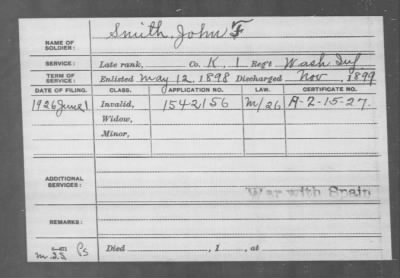 Smith, John F
NAME OF SOLDIER:
SERVICE: Late rank, Co. K, 1 Reg't Wash Inf
TERM OF SERVICE: Enlisted May 12, 1898 Discharged Nov, 1899
DATE OF FILING. CLASS. APPLICATION NO. LAW. CERTIFICATE NO.
1926 June 1 Invalid, 1542156 M/26 A-2-15-27.
Widow,
Minor,
ADDITIONAL SERVICES:
War with Spain
REMARKS:
Died , 1 , at